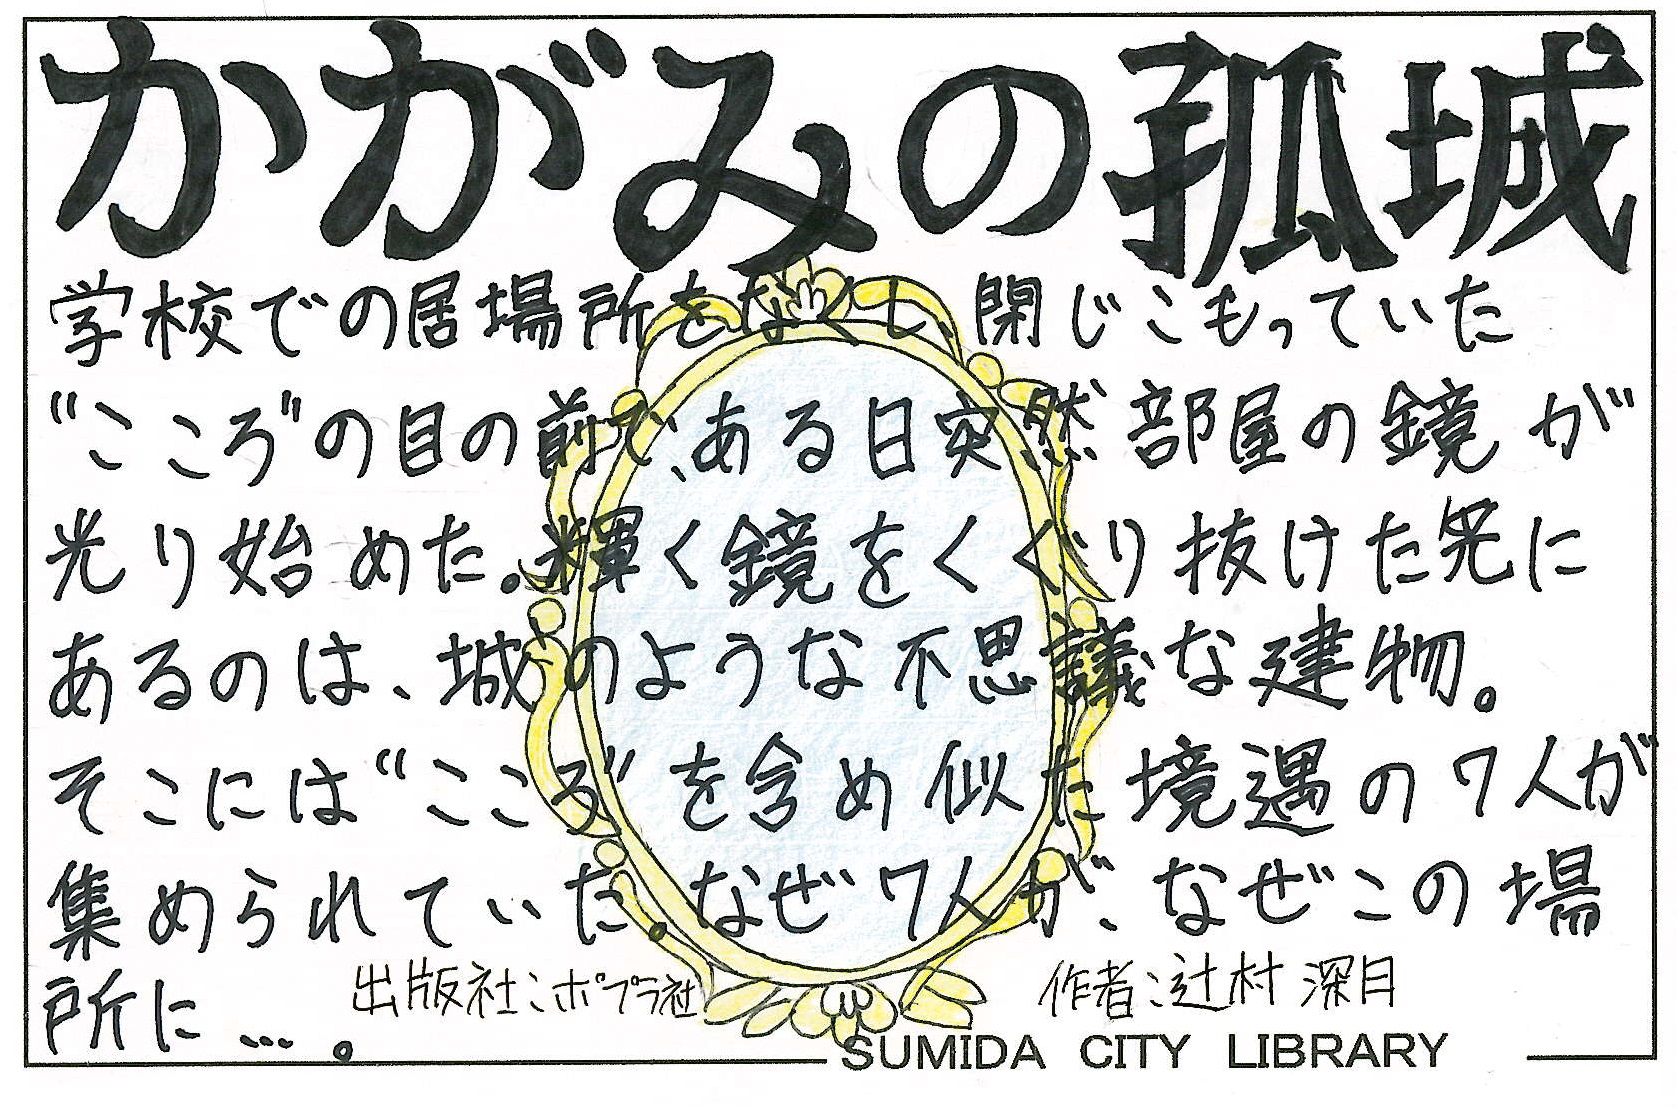 かがみの孤城
学校での居場所をなくし、閉じこもっていた
“こころ”の目の前で、ある日突然部屋の鏡が
光り始めた。輝く鏡をくぐり抜けた先に
あるのは、城のような不思議な建物。
そこには“こころ”を含め似た境遇の7人が
集められていた。なぜ7人が、なぜこの場
所に…。
出版社:ポプラ社
作者:辻村深月
SUMIDA CITY LIBRARY